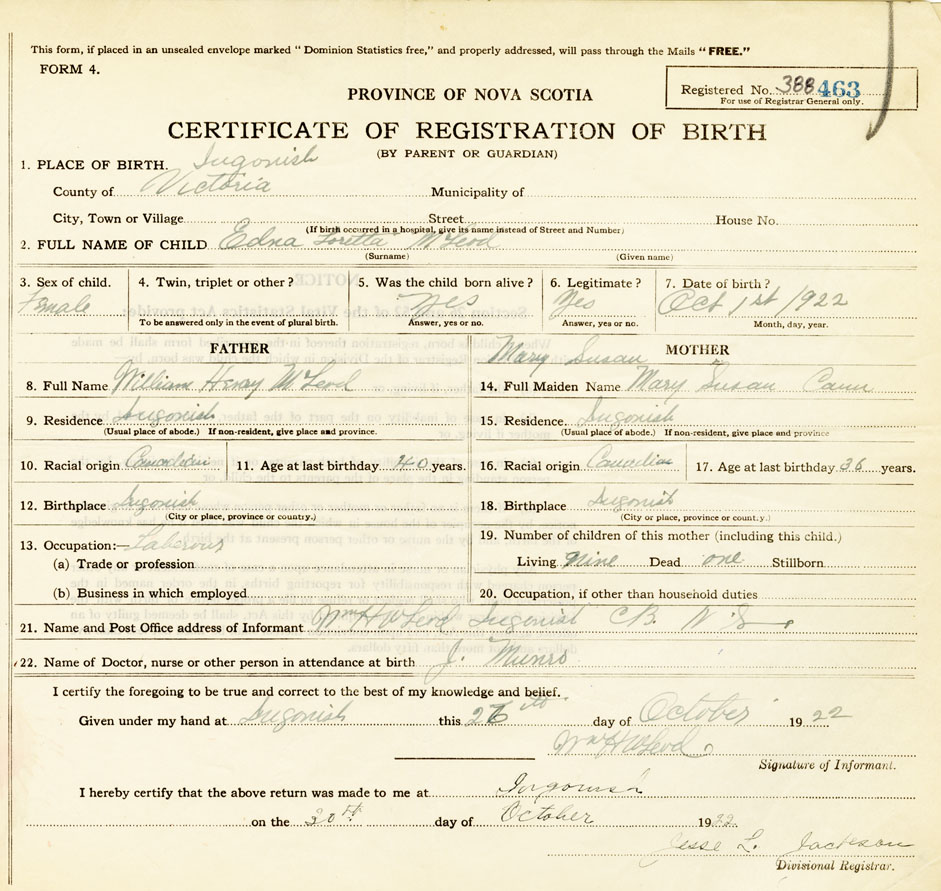 This form, if placed in an unsealed envelope marked "Dominion Statistics free," and properly addressed, will pass through the Mails "FREE."
FORM 4.
Registered No. 388 463
For use of Registrar General only.
PROVINCE OF NOVA SCOTIA
CERTIFICATE OF REGISTRATION OF BIRTH
(BY PARENT OR GUARDIAN)
1. PLACE OF BIRTH. Ingonish
County of Victoria Municipality of
City, Town or Village Street House No.
(If birth occurred in a hospital, give its name instead of Street and Number)
2. FULL NAME OF CHILD Edna Loretta McLeod
(Surname) (Given name)
3. Sex of child. 4. Twin, triplet or other? 5. Was the child born alive? 6. Legitimate? 7. Date of birth?
Female Yes Yes Oct 1st 1922
To be answered only in the event of plural birth. Answer, yes or no. Answer, yes or no. Month, day, year.
FATHER Mary Susan MOTHER
8. Full Name William Henry McLeod 14. Full Maiden Name Mary Susan Cann
9. Residence Ingonish 15. Residence Ingonish
(Usual place of abode.) If non-resident, give place and province. (Usual place of abode.) If non-resident, give place and province
10. Racial origin Canadian 11. Age at last birthday 40 years. 16. Racial origin Canadian 17. Age at last birthday 36 years.
12. Birthplace Ingonish 18. Birthplace Ingonish
(City or place, province or country.) (City or place, province or country.)
13. Occupation:— 19. Number of children of this mother (including this child.)
(a) Trade or profession Living nine Dead one Stillborn
(b) Business in which employed 20. Occupation, if other than household duties
21. Name and Post Office address of Informant Wm H McLeod Ingonish C B. N. S.
22. Name of Doctor, nurse or other person in attendance at birth J. Munro
I certify the foregoing to be true and correct to the best of my knowledge and belief.
Given under my hand at Ingonish this 26th day of October 1922
Wm H McLeod
Signature of Informant.
I hereby certify that the above return was made to me at Ingonish
on the 30th day of October 1922
Jesse L. Jackson
Divisional Registrar.